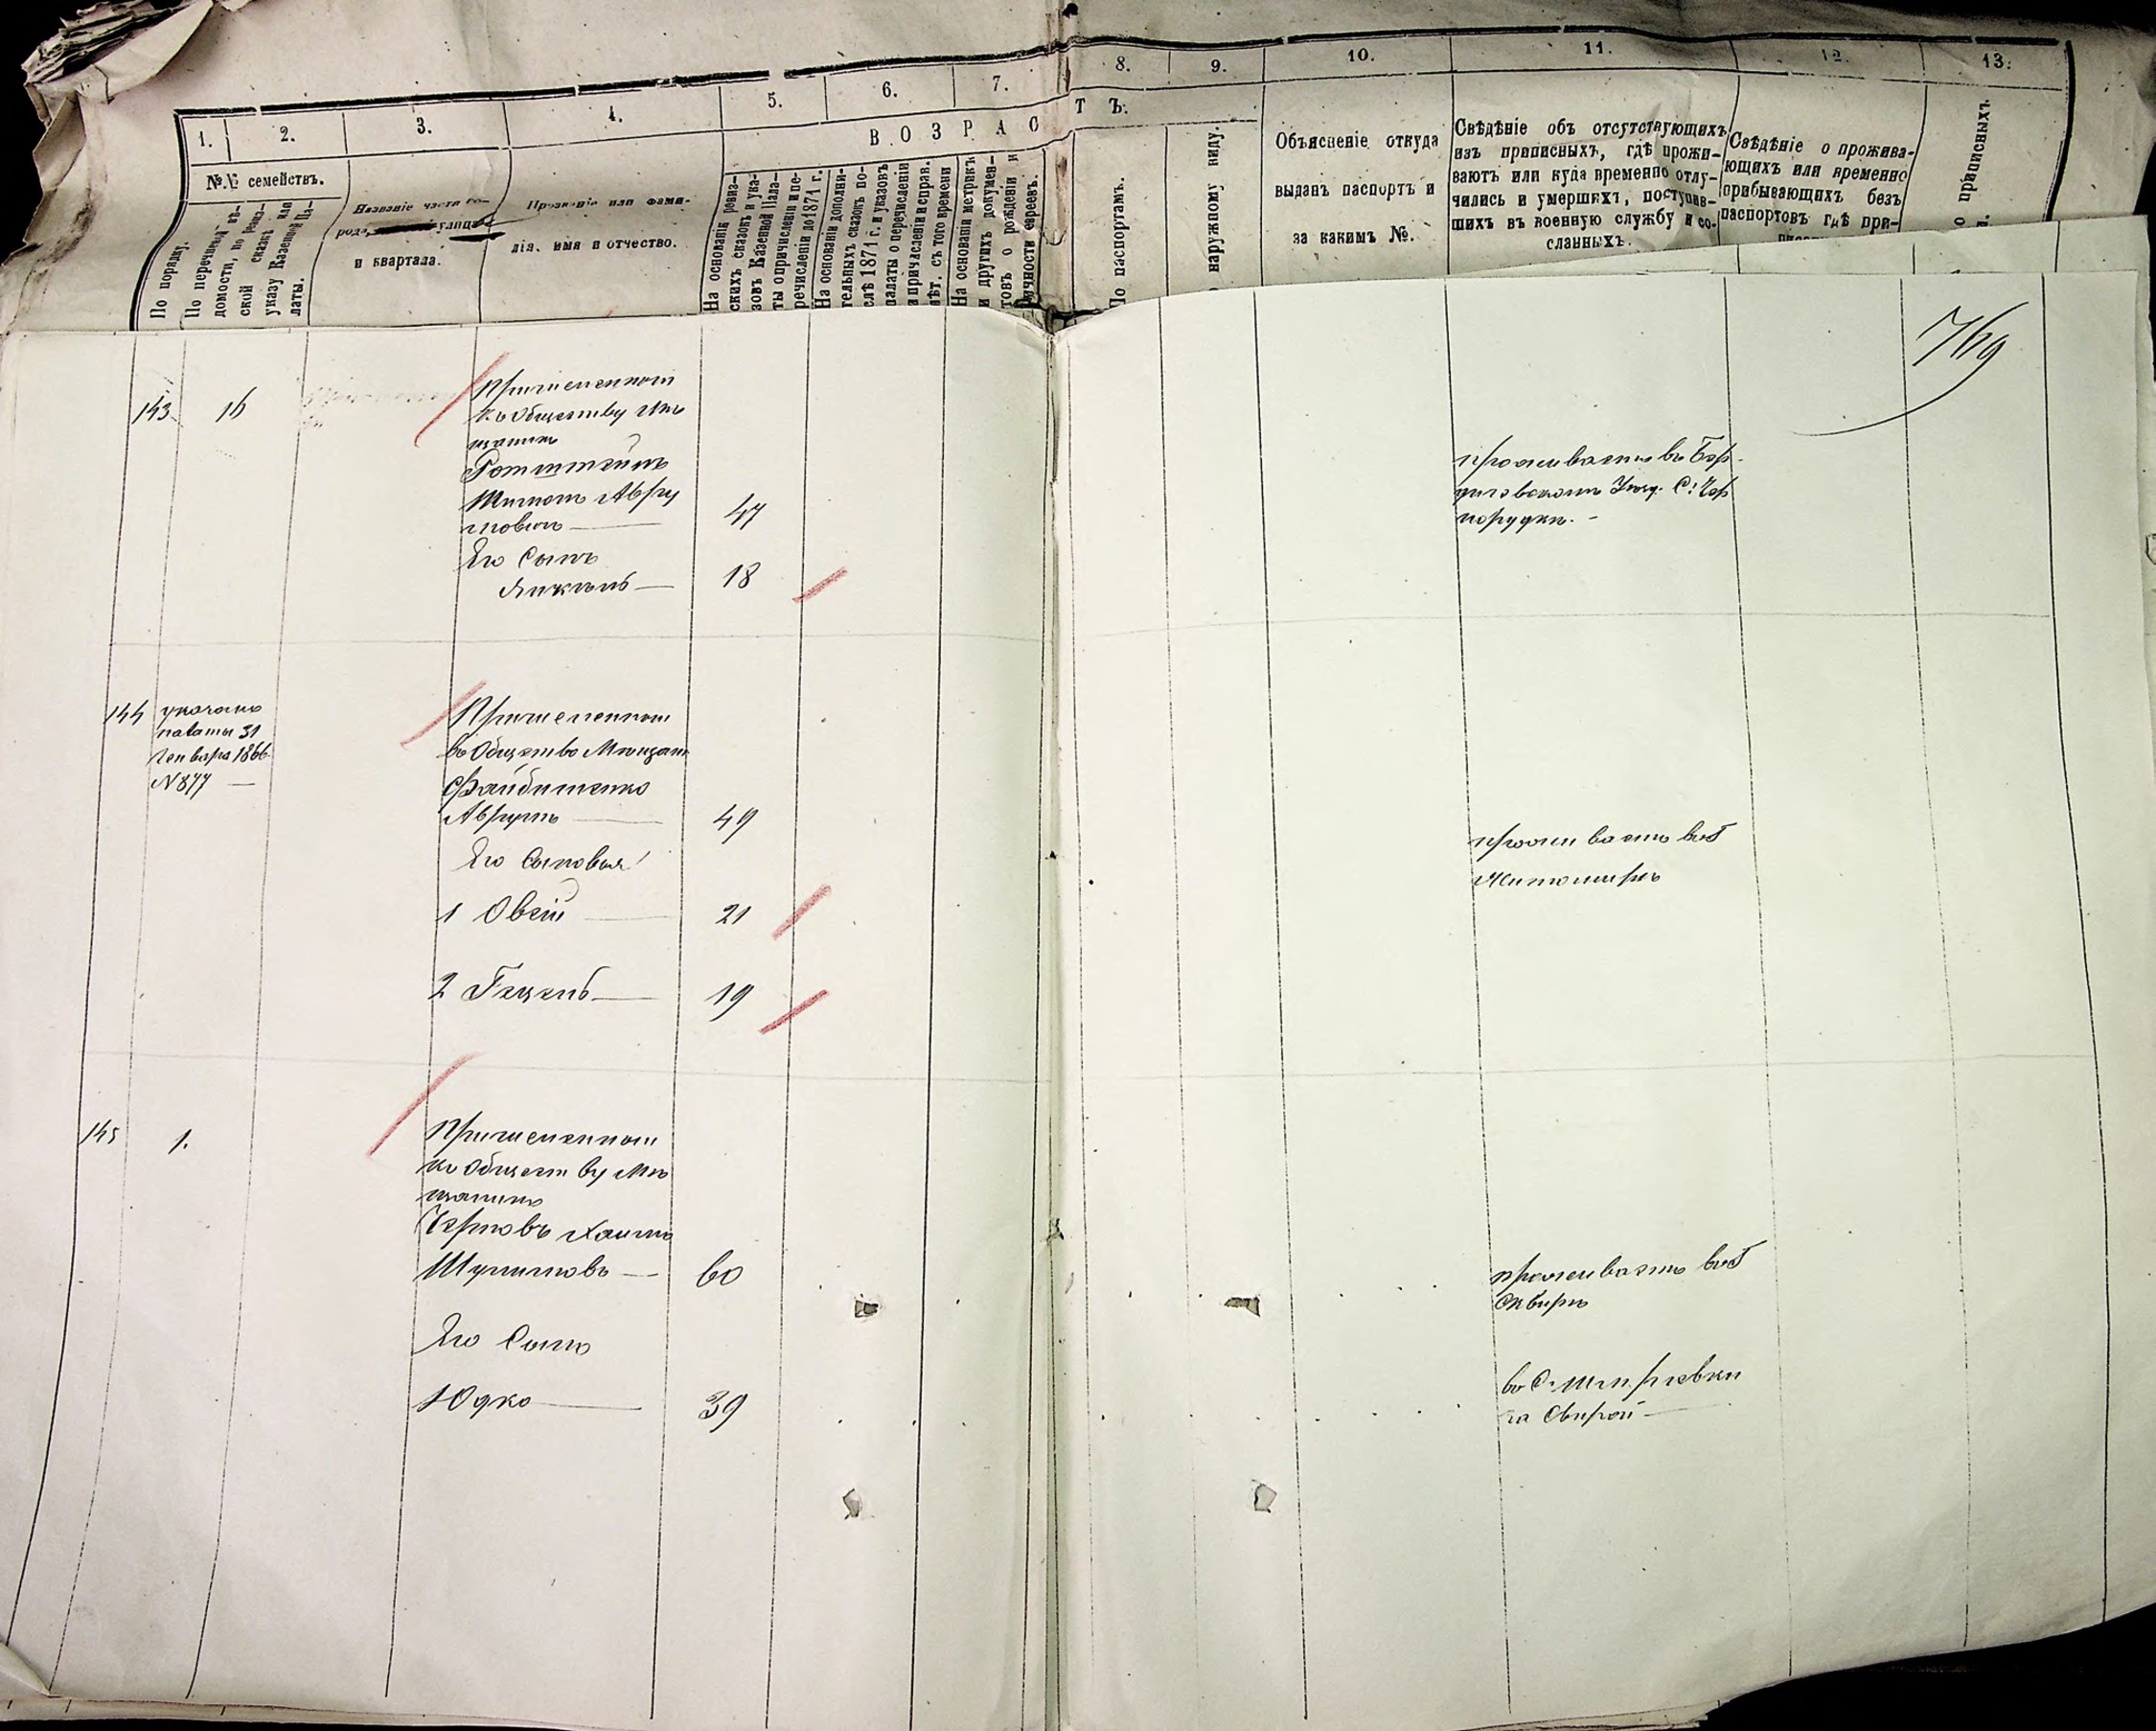 1. 2. 3. 4. 5. 6. 7. 8. 9. 10. 11. 12. 13.
В О З Р А С Т Ъ.
№.№ семействъ.
По порядку.
По перечневой вѣ-
домости, по ревиз-
ской сказкѣ или
указу Казенной Па-
латы.
Названіе части го-
рода, улицы
и квартала.
Прозваніе или фами-
лія, имя и отчество.
На основаніи ревиз-
скихъ сказокъ и ука-
зовъ Казенной Пала-
ты о причисленіи и пе-
речисленіи до 1871 г.
На основаніи дополни-
тельныхъ сказокъ по-
слѣ 1871 г. и указовъ
палаты о перечисленіи
и причисленіи и справ.
лѣт. съ того времени
На основаніи метрикъ
и другихъ докумен-
товъ о рожденіи и
личности евреевъ.
По паспортамъ.
наружному виду.
Объясненіе откуда
выданъ паспортъ и
за какимъ №.
Свѣдѣніе объ отсутствующихъ
изъ приписныхъ, гдѣ прожи-
ваютъ или куда временно отлу-
чились и умершихъ, поступив-
шихъ въ военную службу и со-
сланныхъ.
Свѣдѣніе о прожива-
ющихъ или временно
прибывающихъ безъ
паспортовъ гдѣ при-
о приписныхъ
769
143 16
Причисленной
къ Обществу Мѣ
щанинъ
Ротштейнъ
47
Его Сынъ
Янкель 18
проживаетъ въ Бер
дичевскомъ Уезд. С: Чер
норудки.
144 указано
палаты 31
Генваря 1866
N 877
Причисленной
въ Общество Мѣщан
Файбишенко
Аврумъ 49
Его Сыновья
1 Овсій 21
2 Гецель 19
проживаетъ въ Г
Житомирѣ
145 1.
Причисленной
къ Обществу Мѣ
щанинъ
Черновъ Хаимъ
Шулимовъ 60
Его Сынъ
Юдко 39
проживаетъ въ Г
Сквирѣ
въ С.
за Сквирой